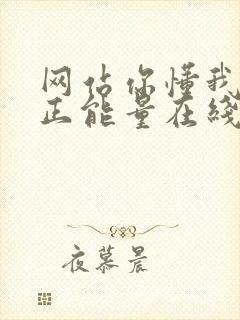 网站你懂我
正能量在线
夜慕晨